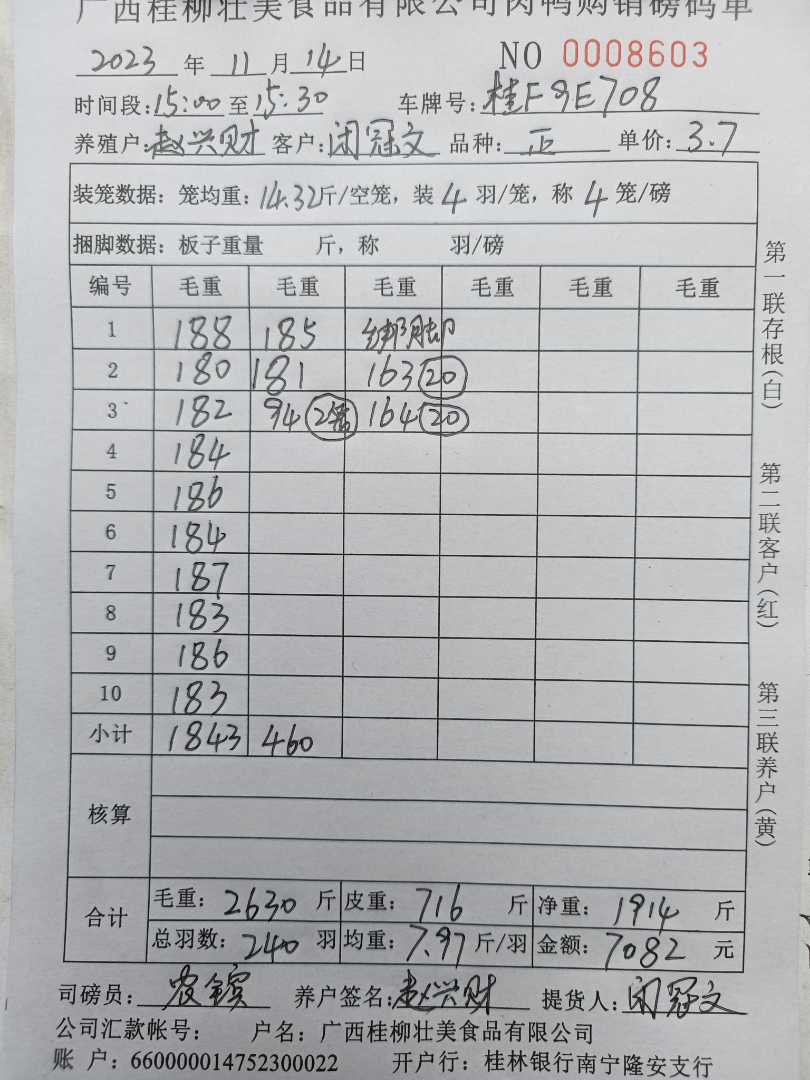 广西桂柳壮美食品有限公司肉鸭购销磅码单
2023 年 11 月 14 日 NO 0008603
时间段: 15:00 至 15:30 车牌号: 桂F9E708
养殖户: 赵兴财 客户: 闭冠文 品种: 正 单价: 3.7
装笼数据: 笼均重: 14.32 斤/空笼, 装 4 羽/笼, 称 4 笼/磅
捆脚数据: 板子重量 斤, 称 羽/磅
编号 毛重 毛重 毛重 毛重 毛重 毛重
1 188 185 绑脚
2 180 181 163 20
3 182 94 2笼 164 20
4 184
5 186
6 184
7 187
8 183
9 186
10 183
小计 1843 460
核算
合计 毛重: 2630 斤 皮重: 716 斤 净重: 1914 斤
总羽数: 240 羽 均重: 7.97 斤/羽 金额: 7082 元
司磅员: 农 养户签名: 赵兴财 提货人: 闭冠文
公司汇款帐号: 户名: 广西桂柳壮美食品有限公司
账 户: 660000014752300022 开户行: 桂林银行南宁隆安支行
第一联存根(白)
第二联客户(红)
第三联养户(黄)